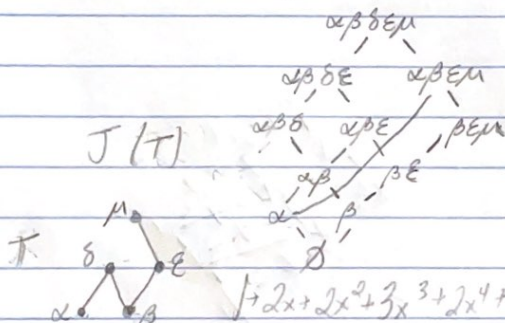 αβδεμ
αβδε αβεμ
αβδ αβε βεμ
J(T)
αβ βε
α β
μ
T δ ε ∅
α β 1+2x+2x²+3x³+2x⁴+